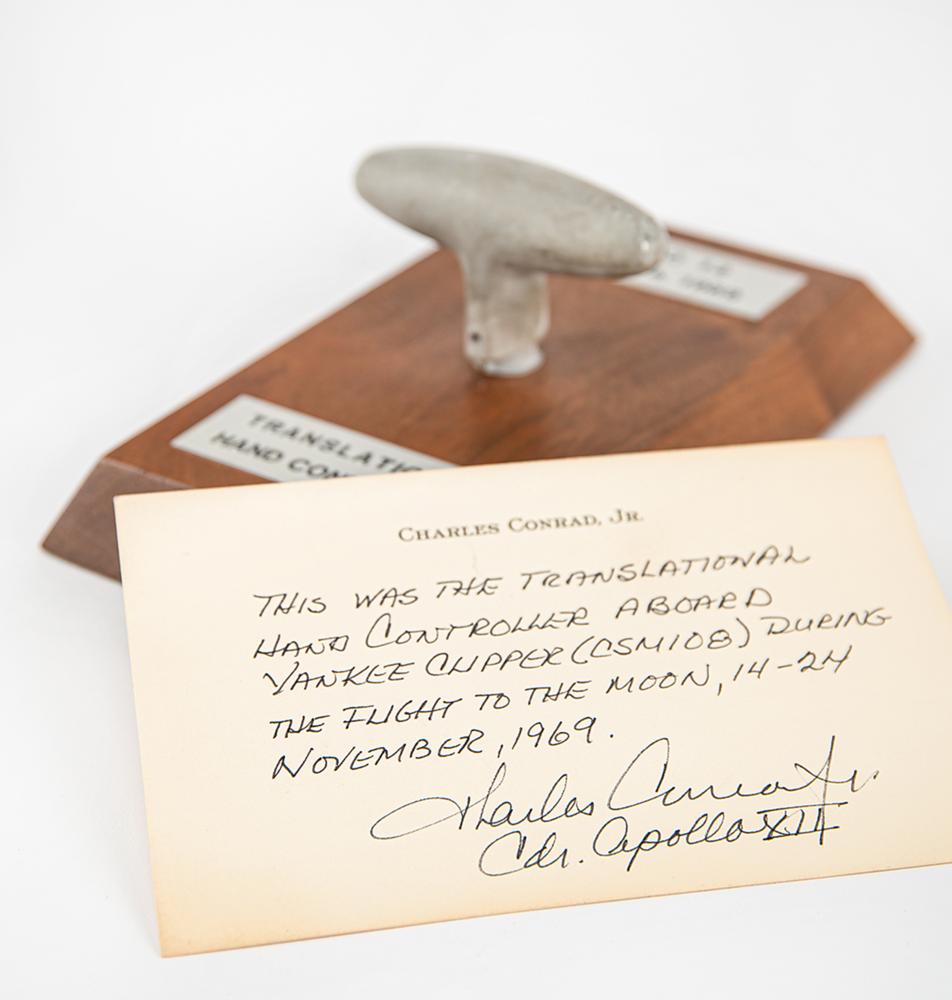 TRANSLATIO
HAND CON
CHARLES CONRAD, JR.
THIS WAS THE TRANSLATIONAL
HAND CONTROLLER ABOARD
YANKEE CLIPPER (CSM108) DURING
THE FLIGHT TO THE MOON, 14-24
NOVEMBER, 1969.
Charles Conrad Jr.
Cdr. Apollo XII